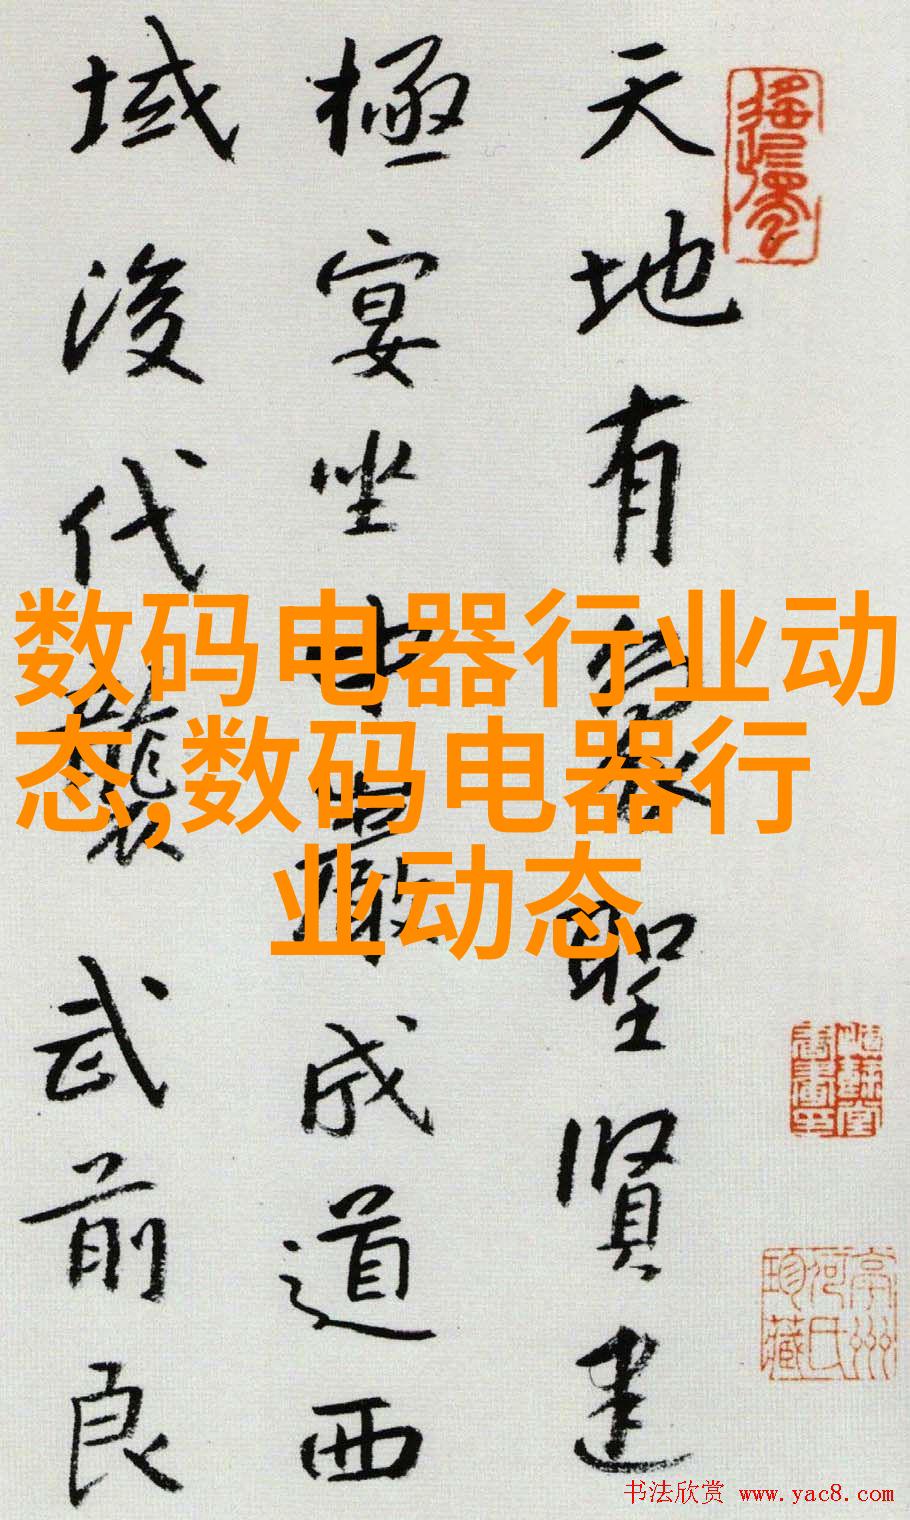 天地有彝聖賢建
極宴坐中嚴成道西
域後代襲武前良
数码电器行业动
态,数码电器行
业动态
亭州
何氏
珍藏
书法欣赏 www.yac8.com